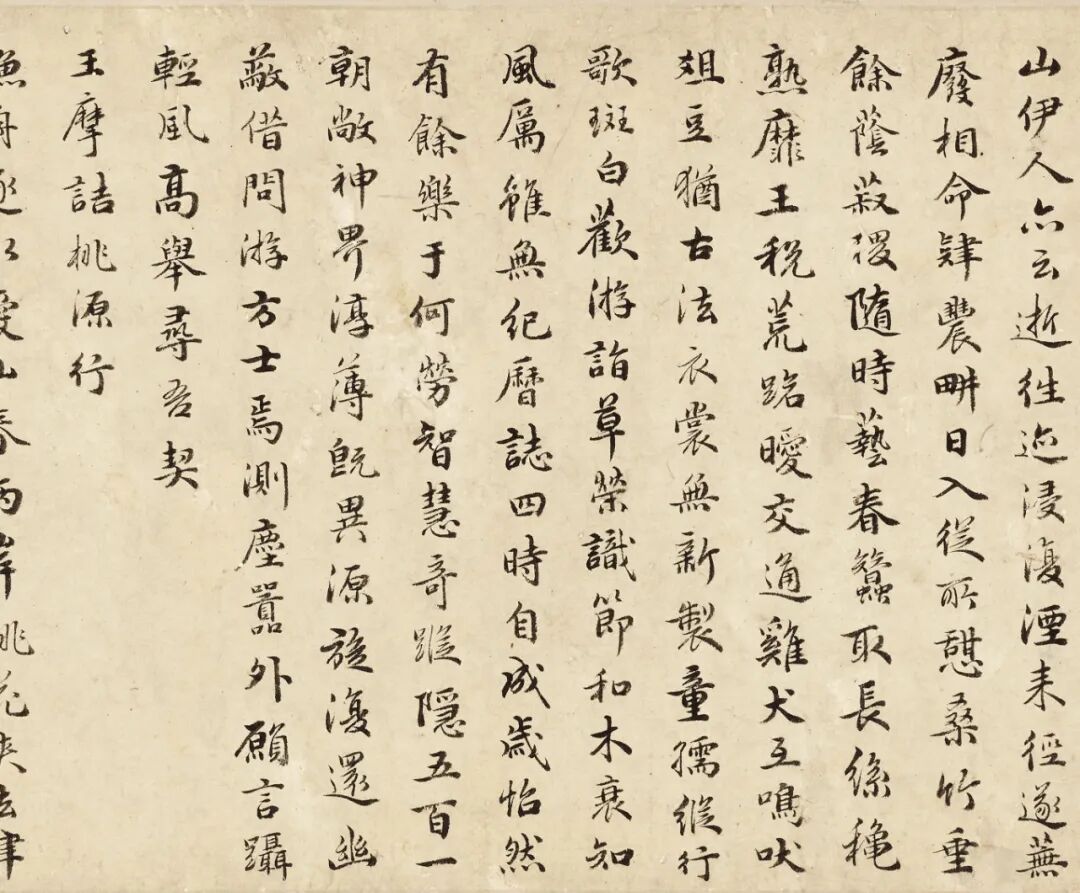 山伊人亦云逝往迹浸復湮来徑遂蕪
廢相命肆農畊日入從所憩桑竹垂
餘蔭菽稷隨時藝春蠶取長絲穐
熟靡王税荒路曖交通雞犬互鳴吠
俎豆猶古法衣裳無新製童孺縱行
歌斑白歡游詣草榮識節和木衰知
風厲雖無紀曆誌四時自成歲怡然
有餘樂于何勞智慧奇蹤隱五百一
朝敞神界淳薄既異源旋復還幽
蔽借問游方士焉測塵囂外願言躡
輕風高舉尋吾契
王摩詰桃源行
漁舟逐水愛山春两岸桃花夾去津